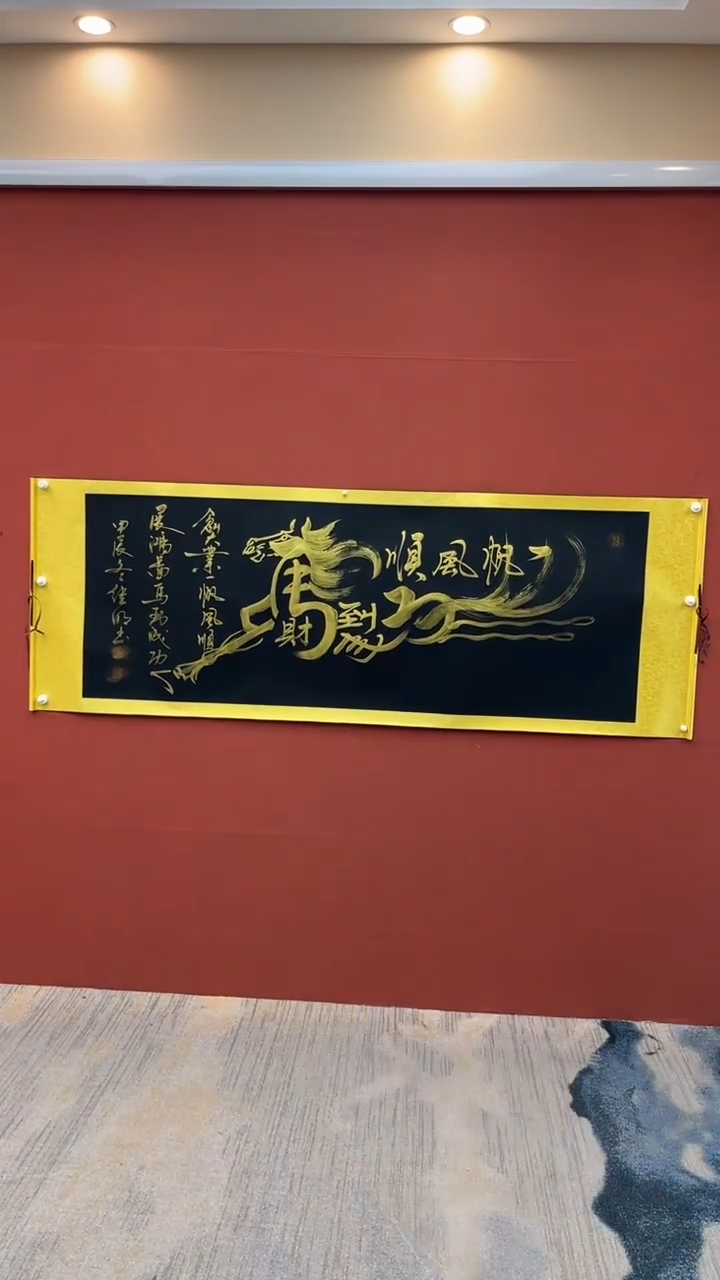 一帆風順
馬到成功
財
創業一帆風順
展鴻圖馬到成功
甲辰冬